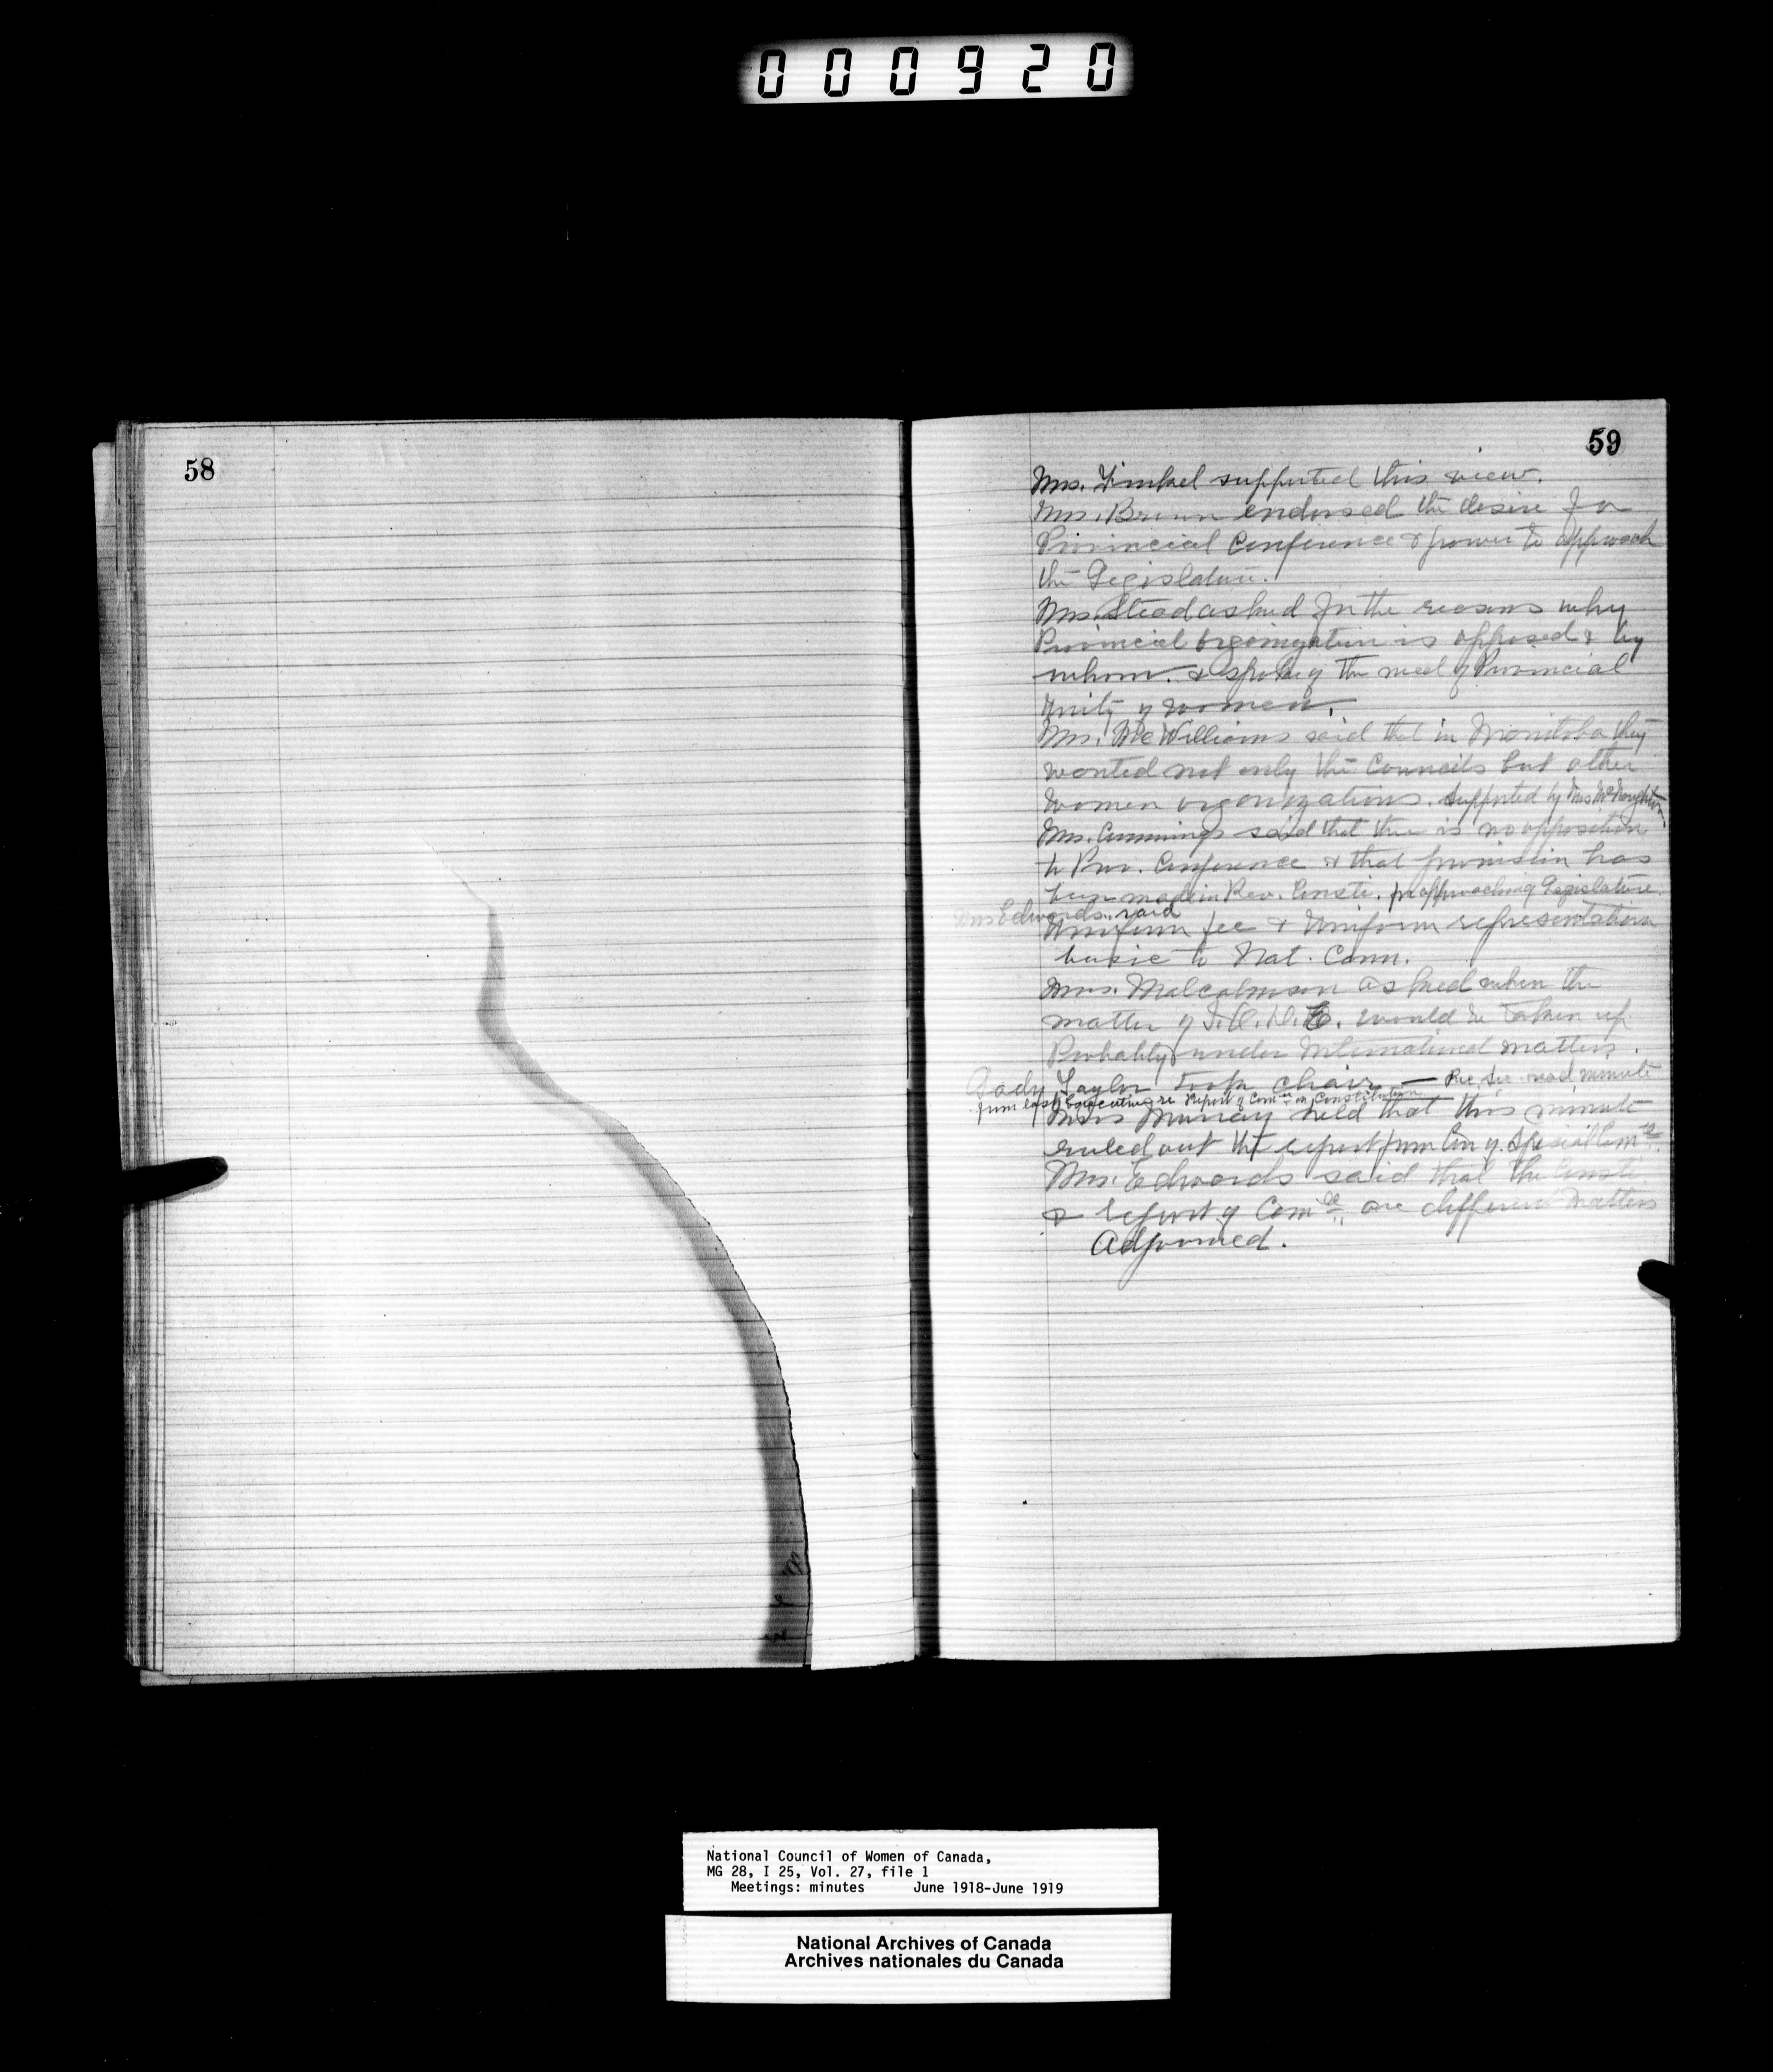 000920
58
59
Mrs. Finkel supported this view.
Mrs. Brown endorsed the desire for
Provincial Conference & power to approach
the Legislature.
Mrs. Stead asked for the reasons why
Provincial Organization is opposed & by
whom. & spoke of the need of Provincial
Unity of women.
Mrs. McWilliams said that in Manitoba they
wanted not only the Councils but other
women organizations. Supported by Mrs McNaughton.
Mrs. Cummings said that there is no opposition
to Prov. Conference & that provision has
been made in Rev. Consti. for approaching Legislature.
Mrs Edwards said
Uniform fee & Uniform representation
basic to Nat. Coun.
Mrs. Malcolmson asked when the
matter of I.O.D.E. would be taken up
Probably under International matters.
Lady Taylor took chair — Rec. Sec. read minute
from last Executive re Report of Comee on Constitution
Murray held that this minute
ruled out the report from Con of Special Comee
Mrs. Edwards said that the Consti.
& report of Comee are different matters
Adjourned.
National Council of Women of Canada,
MG 28, I 25, Vol. 27, file 1
Meetings: minutes June 1918-June 1919
National Archives of Canada
Archives nationales du Canada